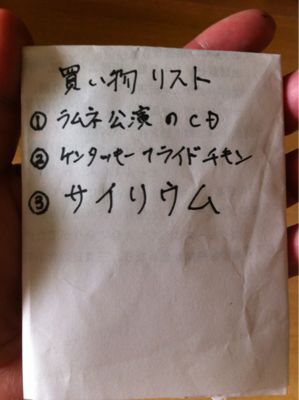 買い物リスト
① ラムネ公演のCD
② ケンタッキーフライドチキン
③ サイリウム